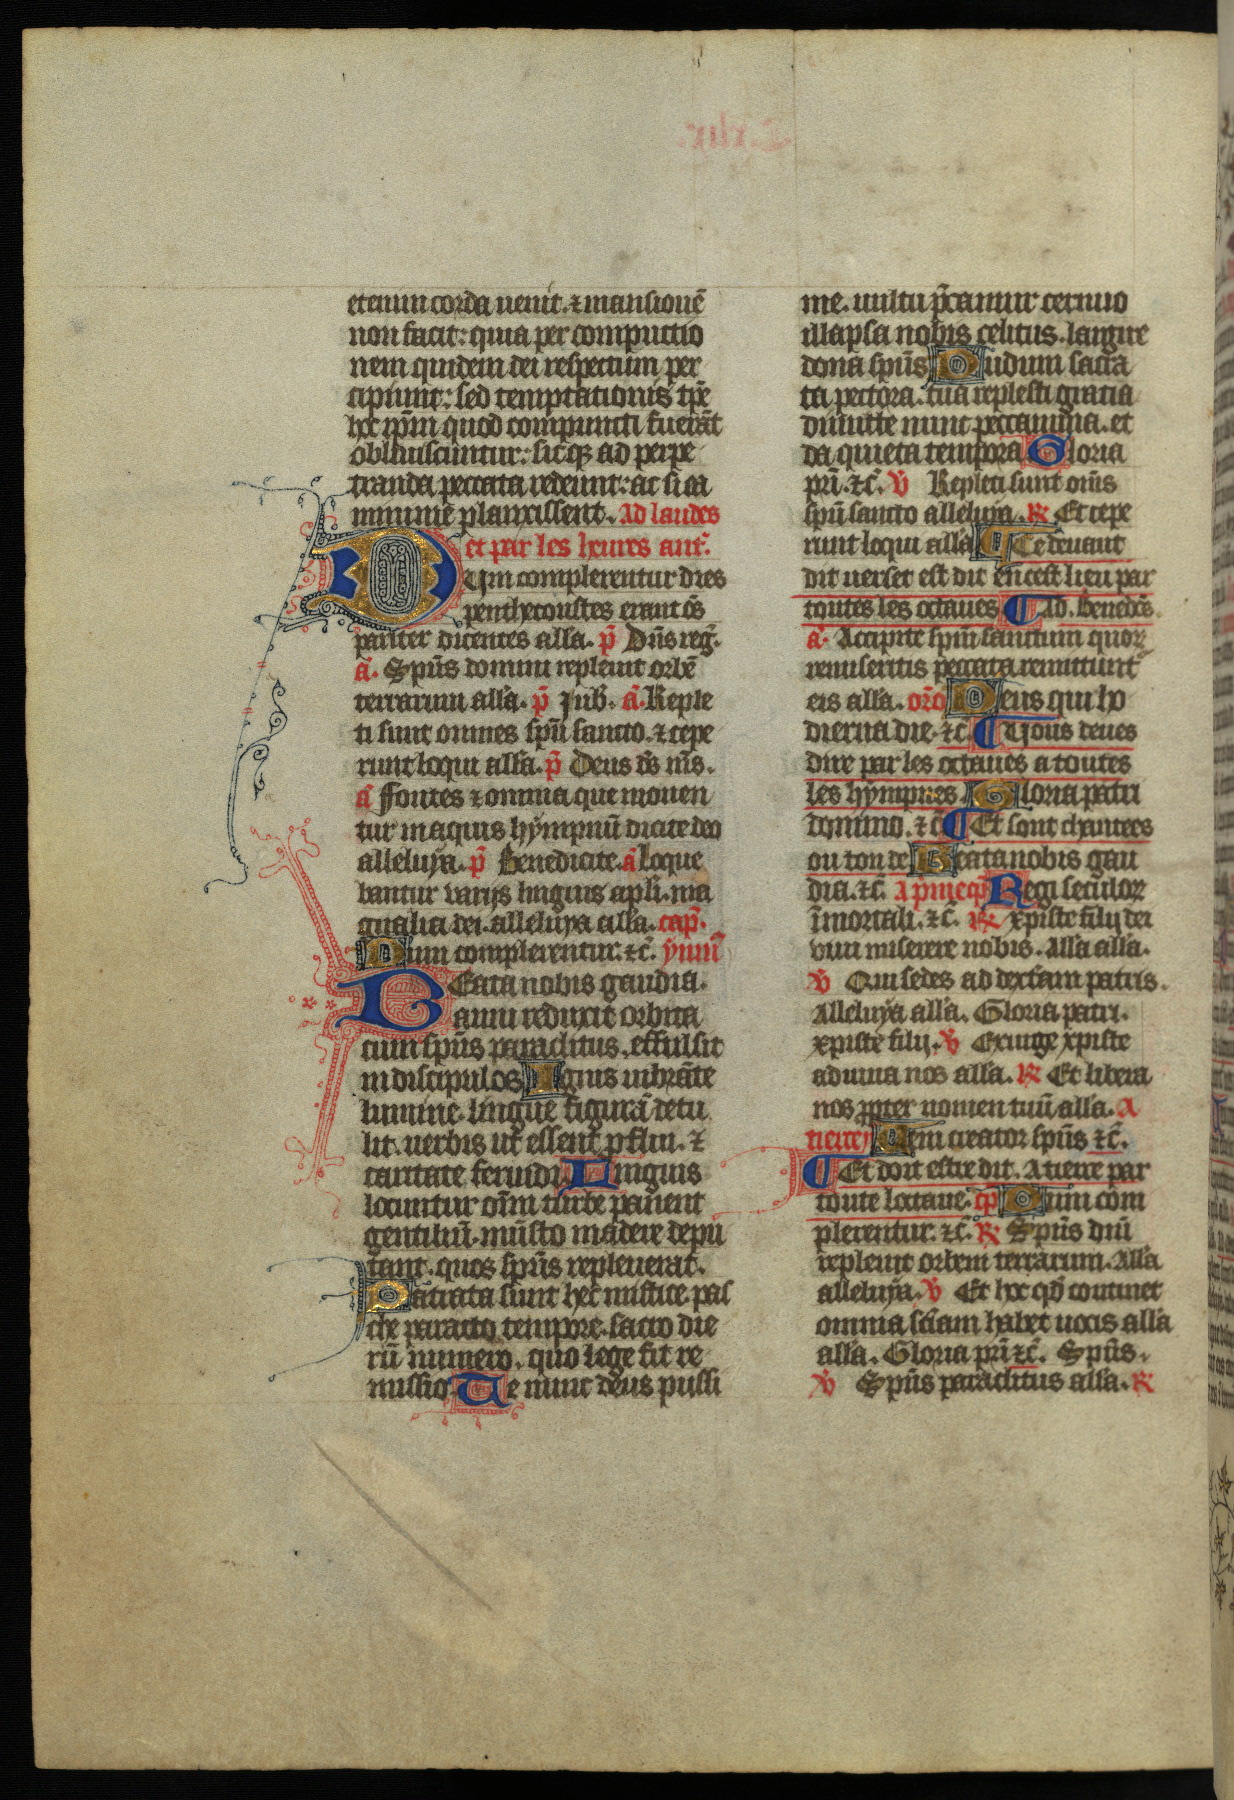 etenim corda uenit. ⁊ mansionē
non facit: quia per compunctio
nem quidem dei respectum per
cipiunt: sed temptationis tp̄e
hoc ip̄m quod compuncti fuerāt
obliuiscuntur: sicqꝫ ad perpe
tranda peccata redeunt: ac si ea
minime planxissent. Ad laudes
et par les heures ant̄.
Dum complerentur dies
penthecoustes erant oēs
pariter dicentes alla. p̄ Dn̄s reḡ.
a. Spūs domini repleuit orbē
terrarum alla. p̄ Jub̄. a. Reple
ti sunt omnes spū sancto. ⁊ cepe
runt loqui alla. p̄ Deus d̄s m̄s.
a Fontes ⁊ omnia que mouen
tur in aquis hympnū dicite deo
alleluya. p̄ Benedicite. a Loque
bantur varijs linguis apl̄i. ma
gnalia dei. alleluya alla. cap̄.
Dum complerentur. ⁊c̄. ymn̄
Beata nobis gaudia.
anni reduxit orbita
cum spūs paraclitus. effulsit
in discipulos Ignis uibrāte
lumine. lingue figurā detu
lit. uerbis ut essent p̱flui. ⁊
caritate feruidi Linguis
locuntur om̄ium turbe pauent
gentiliū. musto madere depu
tant. quos spūs repleuerat.
Patrata sunt hec mistice pas
che peracto tempore. sacro die
rū numero. quo lege fit re
missio. Te nunc deus pijssi
me. uultu p̄camur cernuo
illapsa nobis celitus. largire
dona spūs Dudum sacra
ta pectora. tua replesti gratia
dimitte nunc peccamina. et
da quieta tempora Gloria
pr̄i. ⁊c̄. v̄ Repleti sunt om̄s
spū sancto alleluya. R Et cepe
runt loqui alla ¶ Ce deuant
dit uerset est dit en cest lieu par
toutes les octaues ¶ Ad. Bened̄s.
a. Accipite spm̄ sanctum quoꝝ
remiseritis peccata remittunt̄
eis alla. or̄o Deus qui ho
dierna die. ⁊c̄. ¶ Uous deues
dire par les octaues a toutes
les hympnes Gloria patri
domino. ⁊c̄ ¶ Et sont chantees
ou ton de Beata nobis gau
dia. ⁊c̄. A prime Regi seculoꝝ
īmortali. ⁊c̄. R xp̄iste filij dei
viui miserere nobis. Alla alla.
v̄ Qui sedes ad dextam patris.
Alleluya alla. Gloria patri.
xpiste filij. v̄ Exurge xpiste
adiuua nos alla. R Et libera
nos ꝓpter nomen tuū alla. A
tierce Ueni creator spūs ⁊c̄.
¶ Et doit estre dit. A tierce par
toute loctaue. cp̄ Dum com
plerentur. ⁊c̄. R Spūs dn̄i
repleuit orbem terrarum. Alla
alleluya. v̄ Et hoc qd̄ continet
omnia sciam habet uocis alla
alla. Gloria pr̄i ⁊c̄. Spūs.
v̄ Spūs paraclitus alla. R